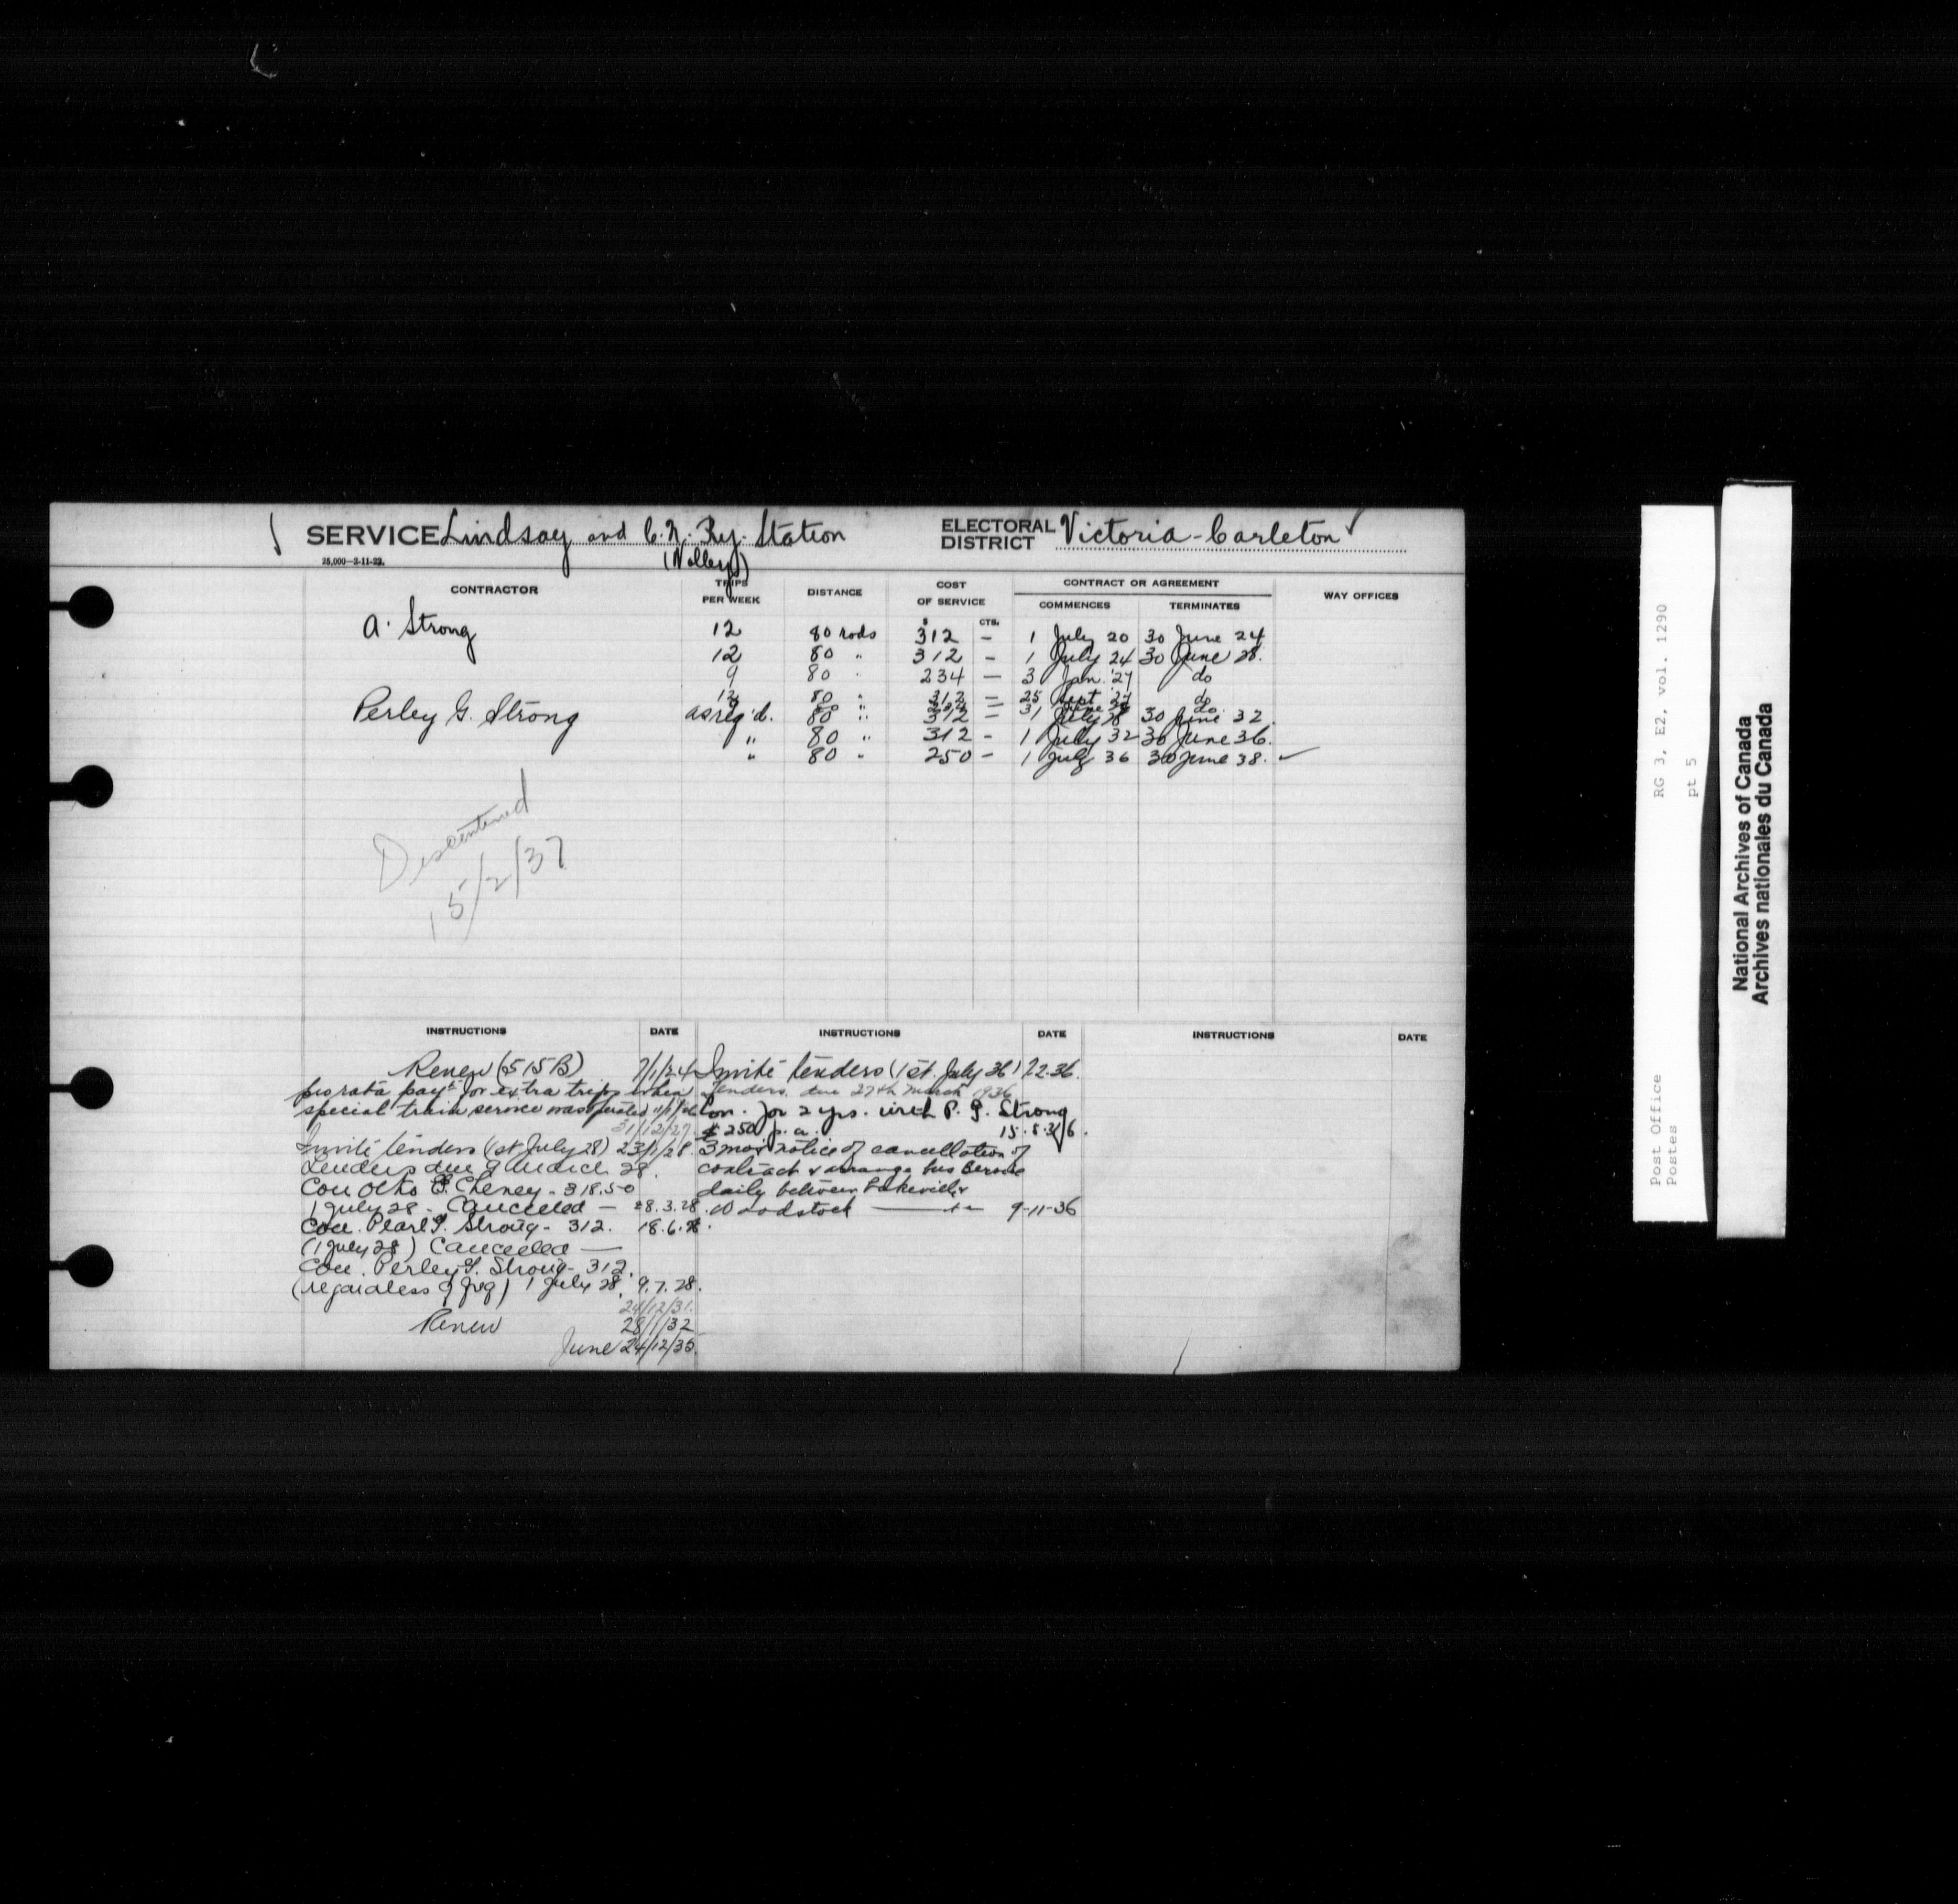 SERVICE Lindsay and C.N. Ry. Station
(Valley)
ELECTORAL DISTRICT Victoria-Carleton
25,000—2-11-22.
CONTRACTOR TRIPS PER WEEK DISTANCE COST OF SERVICE CONTRACT OR AGREEMENT WAY OFFICES
$ CTS. COMMENCES TERMINATES
A. Strong 12 80 rods 312 — 1 July 20 30 June 24
12 80 " 312 — 1 July 24 30 June 28.
9 80 " 234 — 3 Jan. '27 do
12 80 " 312 — 25 Sept '27 do
Perley G. Strong as req'd. 80 " 312 — 1 July 28 30 June 32.
" 80 " 312 - 1 July 32 30 June 36.
" 80 " 250 — 1 July 36 30 June 38. ✓
Discontinued
15/2/37
INSTRUCTIONS DATE INSTRUCTIONS DATE INSTRUCTIONS DATE
Renew (515B) 7/1/24
pro rata payt for extra trips when
special train service was
31/12/27.
Invite tenders (1st July 28) 23/1/28.
Tenders due 9 March 28.
Con Otho E. Cheney - 318.50
1 July 28 - Cancelled — 28.3.28.
Con. Pearl G. Strong - 312. 18.6.28.
(1 July 28) Cancelled —
Con. Perley G. Strong - 312.
(regardless of frq) 1 July 28. 9.7.28.
24/12/31.
Renew 28/1/32
June 24/12/35.
Invite tenders (1st. July 36) 22.36.
Tenders due 27th March 1936
Con. for 2 yrs. with P. G. Strong
$250 p.a. 15.5.36
3 mos notice of cancellation of
contract & arrange bus service
daily between Lakeville &
Woodstock — 9-11-36
Post Office RG 3, E2, vol. 1290
Postes pt 5
National Archives of Canada
Archives nationales du Canada